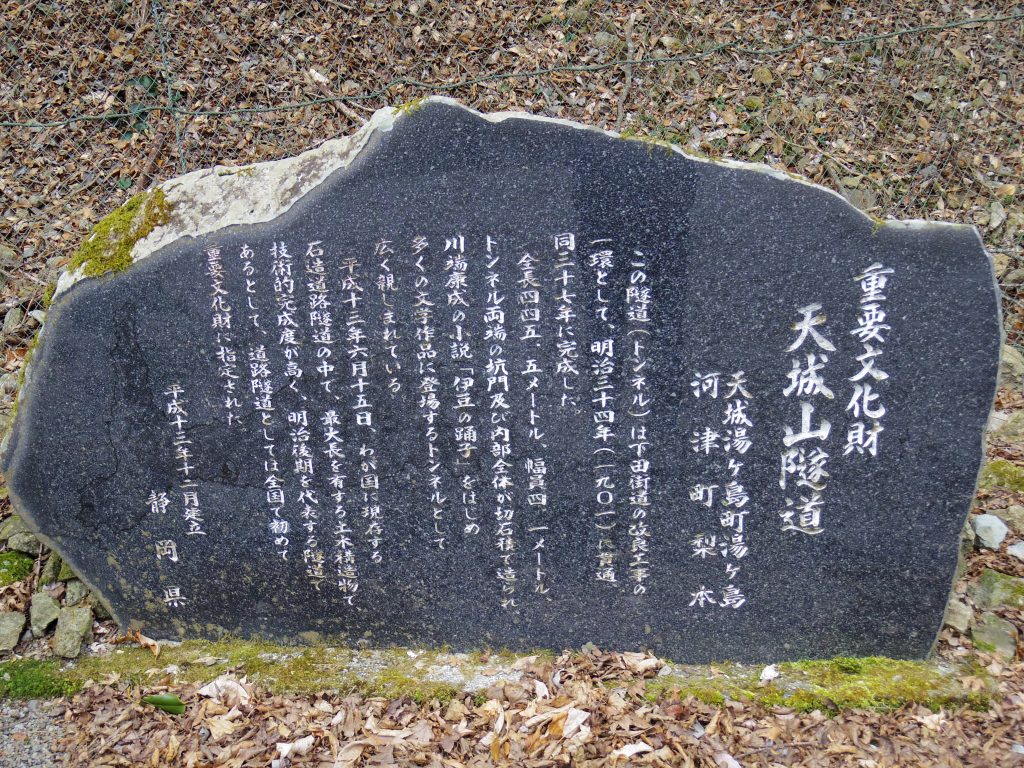 重要文化財
天城山隧道
天城湯ヶ島町湯ヶ島
河津町梨本
この隧道(トンネル)は下田街道の改良工事の
一環として、明治三十四年(一九〇一)に貫通、
同三十七年に完成した。
全長四四五．五メートル、幅員四．一メートル、
トンネル両端の坑門及び内部全体が切石積で造られ
川端康成の小説「伊豆の踊子」をはじめ
多くの文学作品に登場するトンネルとして
広く親しまれている。
平成十三年六月十五日、わが国に現存する
石造道路隧道の中で、最大長を有する土木構造物で
技術的完成度が高く、明治後期を代表する隧道で
あるとして、道路隧道としては全国で初めて
重要文化財に指定された。
平成十三年十二月建立
静岡県